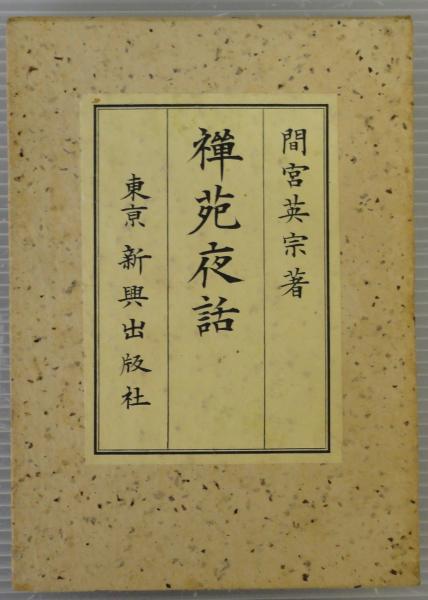 間宮英宗著
禅苑夜話
東京 新興出版社